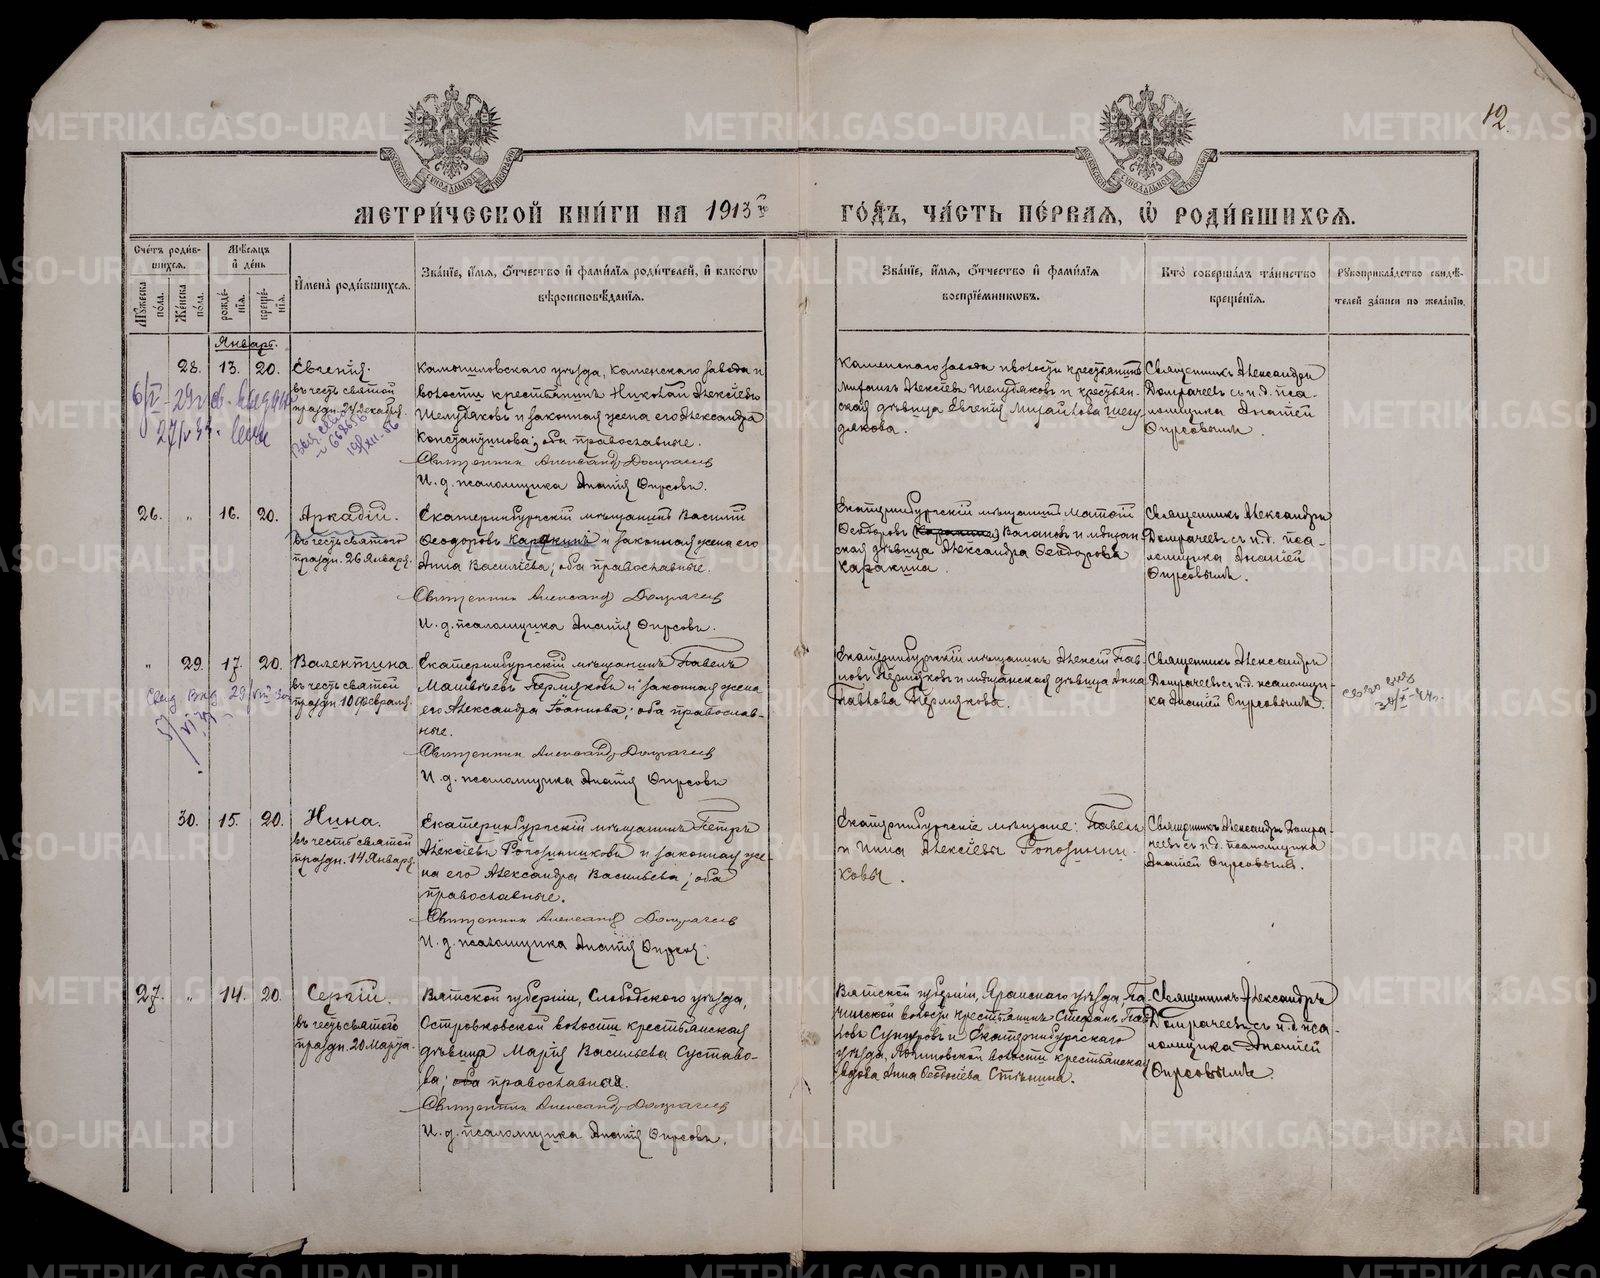 12.
МЕТРИЧЕСКОЙ КНИГИ НА 1913 й
ГОДЪ, ЧАСТЬ ПЕРВАЯ, Ѡ РОДИВШИХСЯ.
Счетъ родив-
шихся.
Мужеска
пола.
Женска
пола.
Мѣсяцъ
и день
рожде-
нія.
креще-
нія.
Имена родившихся.
Званіе, имя, отчество и фамилія родителей, и какогѡ
вѣроисповѣданія.
Званіе, имя, отчество и фамилія
воспріемниковъ.
Кто совершалъ таинство
крещенія.
Рукоприкладство свидѣ-
телей записи по желанію.
Январь.
28. 13. 20.
Евгенія.
въ честь святой
праздн. 24 Декабря.
Камышловскаго уѣзда, Каменскаго завода и
волости крестьянинъ Николай Алексѣевъ
Шелудяковъ и законная жена его Александра
Константинова; оба православные.
Священникъ Александр Домрачеев
И. д. псаломщика Ананія Фирсовъ.
Каменскаго завода и волости крестьянинъ
Михаилъ Алексѣевъ Шелудяковъ и крестьян-
ская дѣвица Евгенія Михайлова Шелу-
дякова.
Священникъ Александръ
Домрачеевъ съ и. д. пса-
ломщика Ананіей
Фирсовымъ.
26. " 16. 20.
Аркадій.
въ честь святого
праздн. 26 Января.
Екатеринбургскій мѣщанинъ Василій
Ѳеодоровъ Каракинъ и законная жена его
Анна Васильева; оба православные.
Священникъ Александр Домрачеев
И. д. псаломщика Ананія Фирсовъ.
Екатеринбургскій мѣщанинъ
Ѳеодоровъ Вагановъ и мѣщан-
ская дѣвица Александра Ѳеодорова
Каракина.
Священникъ Александръ
Домрачеевъ съ и. д. пса-
ломщика Ананіей
Фирсовымъ.
" 29. 17. 20.
Валентина.
въ честь святой
праздн. 10 Февраля.
Екатеринбургскій мѣщанинъ Павелъ
Матвѣевъ Пермяковъ и законная жена
его Александра Іоаннова; оба православ-
ные.
Священникъ Александр Домрачеев
И. д. псаломщика Ананія Фирсовъ
Екатеринбургскій мѣщанинъ Алексій Пав-
ловъ Пермяковъ и мѣщанская дѣвица Анна
Павлова Пермякова.
Священникъ Александръ
Домрачеевъ съ и. д. псаломщи-
ка Ананіей Фирсовымъ.
30. 15. 20.
Нина.
въ честь святой
праздн. 14 Января.
Екатеринбургскій мѣщанинъ Петръ
Алексѣевъ Рогожниковъ и законная же-
на его Александра Васильева; оба
православные.
Священникъ Александр Домрачеев
И. д. псаломщика Ананія Фирсовъ.
Екатеринбургскіе мѣщане: Павелъ
и Нина Алексѣевы Рогожни-
ковы.
Священникъ Александръ Домра-
чеевъ съ и. д. псаломщика
Ананіей Фирсовымъ.
27. " 14. 20.
Сергій.
въ честь святого
праздн. 20 Марта.
Вятской губерніи, Слободского уѣзда,
Островновской волости крестьянская
дѣвица Марія Васильева Суставо-
ва; православная.
Священникъ Александр Домрачеев
И. д. псаломщика Ананія Фирсовъ.
Вятской губерніи, Яранскаго уѣзда, Па-
чинской волости крестьянинъ Стефанъ Пав-
ловъ Сунгуровъ и Екатеринбургскаго
уѣзда, волости крестьянская
вдова Анна Ѳеодосіева Стенина.
Священникъ Александръ
Домрачеевъ съ и. д. пса-
ломщика Ананіей
Фирсовымъ.
METRIKI.GASO-URAL.RU